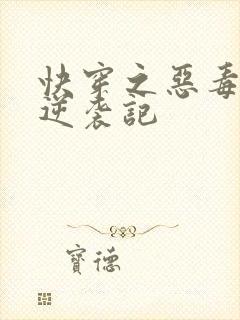 快穿之惡毒
逆袭記
寶德